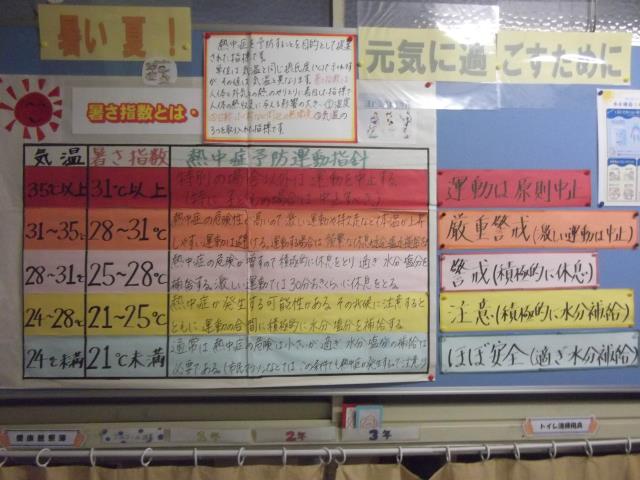 暑い夏!
元気に過ごすために
熱中症を予防することを目的として提案
された指標です
単位は気温と同じ摂氏度(℃)で示されます
が、その値は気温と異なります。暑さ指数は
人体と外気との熱のやりとりに着目した指標で
人体の熱収支に与える影響の大きい ①湿度
②日射・ふく射など周辺の熱環境 ③気温の
3つを取り入れた指標です
暑さ指数とは・
気温 暑さ指数 熱中症予防運動指針
35℃以上 31℃以上 特別の場合以外は運動を中止する
(特に子どもの場合は中止すべき)
31~35℃ 28~31℃ 熱中症の危険性が高いので激しい運動や持久走など体温が上昇
しやすい運動は避ける。運動する場合は
28~31℃ 25~28℃ 熱中症の危険が増すので積極的に休息をとり適宜、水分・塩分を
補給する。激しい運動では30分おきくらいに休息をとる。
24~28℃ 21~25℃ 熱中症が発生する可能性がある。その兆候に注意すると
ともに運動の合間に積極的に水分・塩分を補給する。
24℃未満 21℃未満 通常は熱中症の危険は小さいが適宜水分・塩分の補給は
必要である。(市民マラソンなどではこの条件でも熱中症が発生するので注意。)
運動は原則中止
厳重警戒(激しい運動は中止)
警戒(積極的に休息)
注意(積極的に水分補給)
ほぼ安全(適宜水分補給)
健康観察簿
1年
2年
3年
トイレ清掃用具